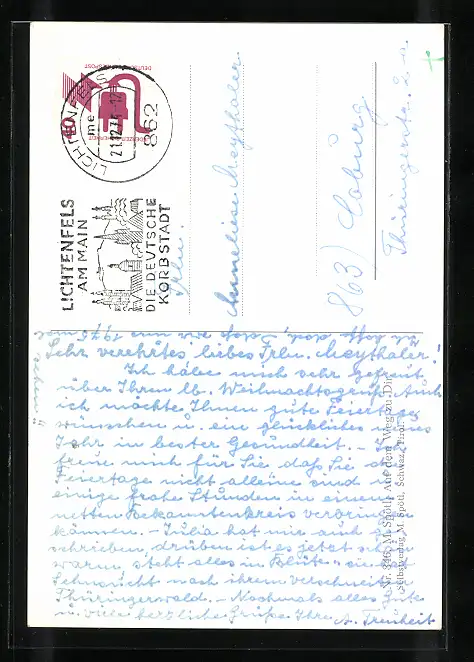 DEUTSCHE BUNDESPOST
40
LICHTENFELS
me
21.12.7
862
LICHTENFELS
AM MAIN
DIE DEUTSCHE
KORBSTADT
Frln.
Anneliese Meythaler
863) Coburg
Thüringerstr. 2 a
Sehr verehrtes, liebes Frln. Meythaler!
Ich habe mich sehr gefreut
über Ihren lb. Weihnachtsgruß. Auch
ich möchte Ihnen gute Feiertage
wünschen u. ein glückliches neues
Jahr in bester Gesundheit. - Ich
freue mich für Sie daß Sie die
Feiertage nicht alleine sind u.
einige frohe Stunden in einem
netten Bekanntenkreis verbringen
können. - Julia hat mir auch ge-
schrieben, drüben ist es jetzt schön
warm, steht alles in Blüte - sie hat
Sehnsucht nach ihrem verschneiten
Thüringerwald. - Nochmals alles Gute
u. viele herzliche Grüße Ihre A. Treuheit
Ich hoffe doch, daß wir uns 1975 mal
sehen
Nr. 846 M. Spötl: Auf dem Weg zu Dir
Selbstverlag M. Spötl, Schwaz, Tirol